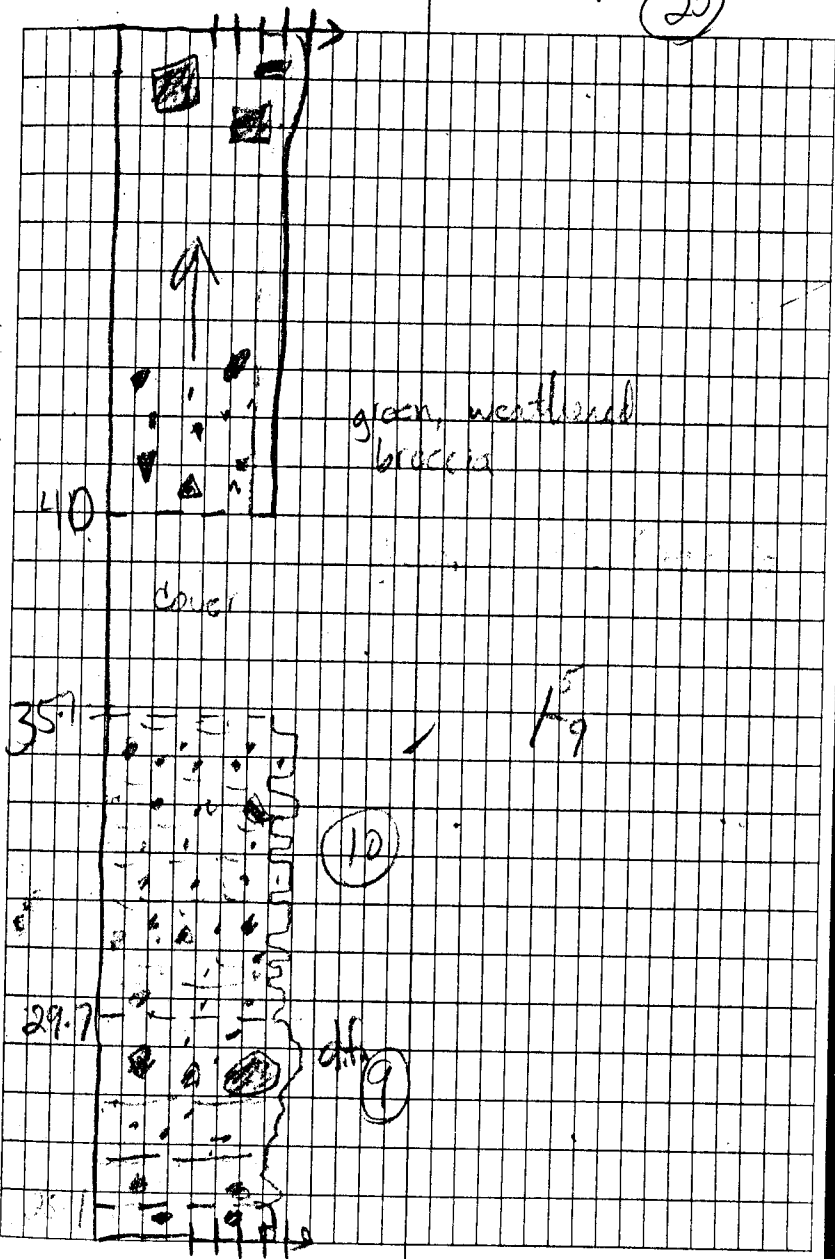 green, weathered
breccia
40
cover
35.7
5
9
10
29.7
9